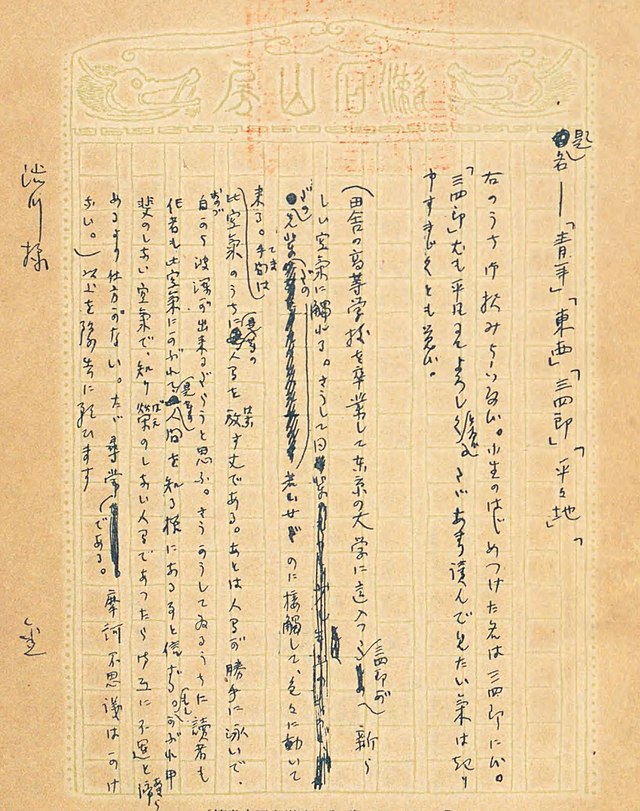 漱石山房
題名―「青年」「東西」「三四郎」「平々地」
右のうち御択み被下度候。小生のはじめつけた名は三四郎に候。
「三四郎」尤も平凡にてよろしくと存候。たゞあまり読んで見たい気は起り
申すまじくとも覚候。
(田舎の高等学校を卒業して東京の大学に這入つた三四郎が新ら
しい空気に触れる。さうして同輩だの
先輩だの若い女だのに接触して、色々に動いて
来る。手間は
此空気のうちに是等の人間を放す丈である。あとは人間が勝手に泳いで、
自から波瀾が出来るだらうと思ふ。さうかうしてゐるうちに読者も
作者も此空気にかぶれて是等の人間を知る様になる事と信ずる。もしかぶれ甲
斐のしない空気で、知り栄のしない人間であつたら御互に不運と諦め
るより仕方がない。たゞ尋常である。摩訶不思議はかけ
ない。)以上を予告に願ひます
渋川様
金